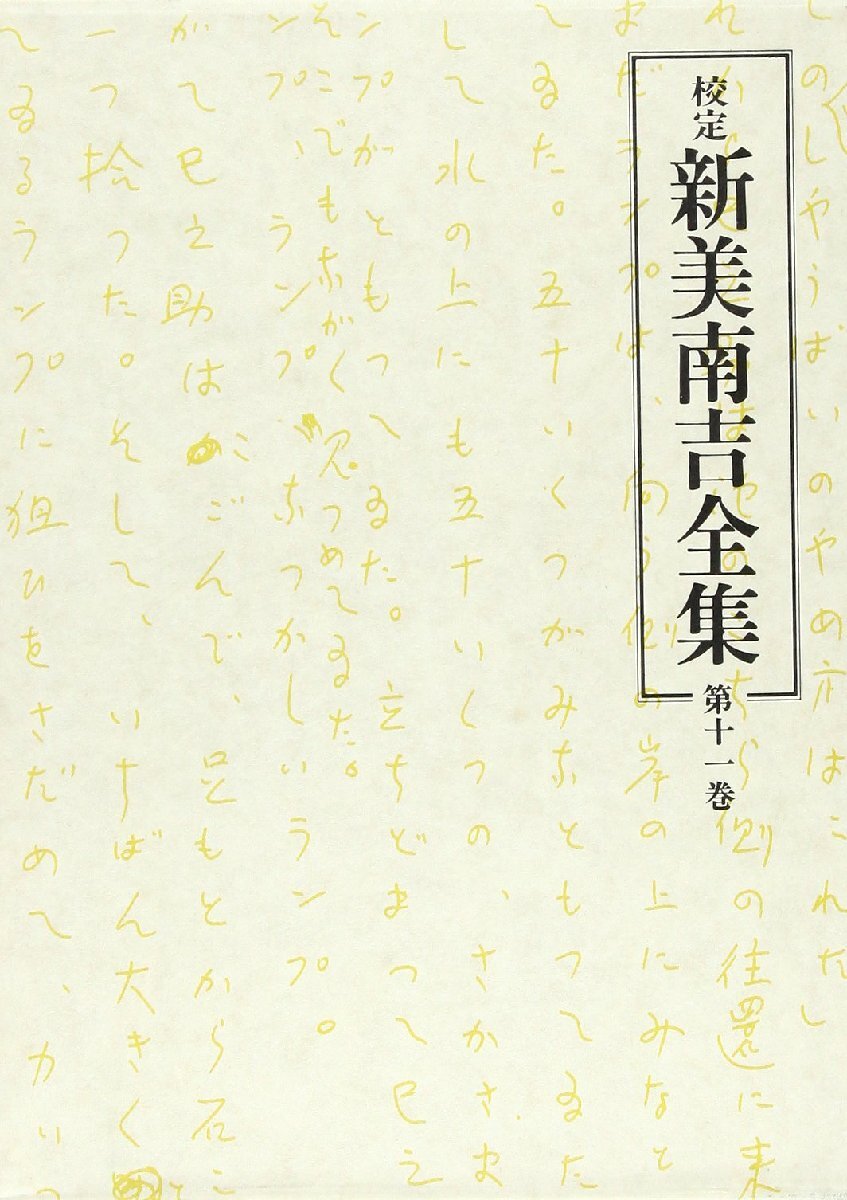 校定
新美南吉全集
第十一巻
しのしやうばいのやめ方はこれだ」
れから巳之助は池のこちら側の往還に来
まだランプは、向う側の岸の上にみなと
てゐた。五十いくつがみなともつてゐた
して水の上にも五十いくつの、さかさま
ンプがともつてゐた。立ちどまつて巳之
そこでもながく見つめてゐた。
ンプ、ランプ、なつかしいランプ。
がて巳之助はかごんで、足もとから石こ
一つ拾つた。そして、いちばん大きくと
てゐるランプに狙ひをさだめて、力いつ